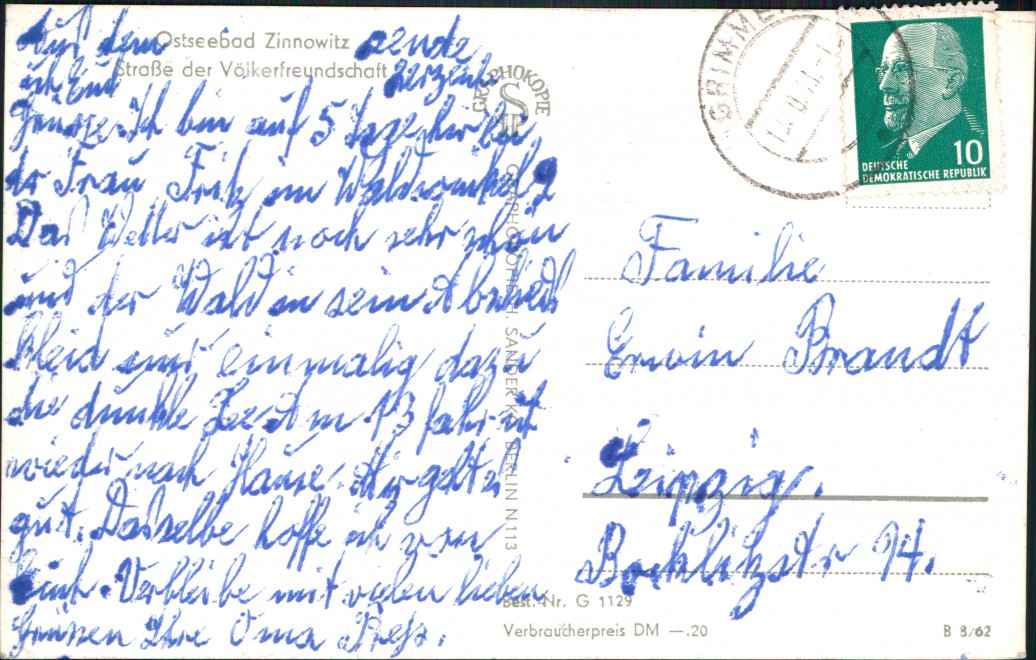 Aus dem Ostseebad Zinnowitz sende
Straße der Völkerfreundschaft
ich Euch herzliche
Grüsse. Ich bin auf 5 Tage hier bei
der Frau Fritz im Waldwinkel 9
Das Wetter ist noch sehr schön
und der Wald in sein Abschieds
kleid und einmalig dazu
die dunkle See. Am 13 fahr ich
wieder nach Hause. Mir geht es
gut. Dasselbe hoffe ich von
Euch. Verbleibe mit vielen lieben
Grüssen Ihre Oma
GRAPHOKOPIE
GRAPHOKOPIE H. SANDER KG, BERLIN N 113
GRIMMEN
DEUTSCHE
DEMOKRATISCHE REPUBLIK
10
Familie
Erwin Brandt
Leipzig.
Bocklitzstr 14.
Best. Nr. G 1129
Verbraucherpreis DM —.20
B 8/62